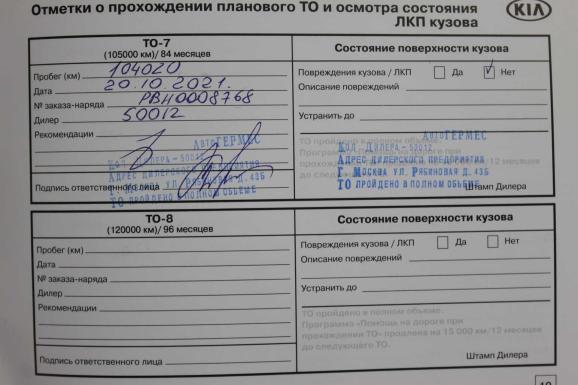 Отметки о прохождении планового ТО и осмотра состояния
ЛКП кузова
KIA
ТО-7
(105000 км)/ 84 месяцев
Пробег (км) 104020
Дата 20.10.2021.
№ заказа-наряда РВН0008768
Дилер 50012
Рекомендации
АвтоГЕРМЕС
Код Дилера - 50012
Адрес дилерского предприятия
Г. Москва ул. Рябиновая д. 43Б
ТО пройдено в полном объеме
Подпись ответственного лица
Состояние поверхности кузова
Повреждения кузова / ЛКП Да Нет
Описание повреждений
Устранить до
ТО пройдено в полном объеме.
АвтоГЕРМЕС
Код Дилера - 50012
Адрес дилерского предприятия
Г. Москва ул. Рябиновая д. 43Б
ТО пройдено в полном объеме
Штамп Дилера
ТО-8
(120000 км)/ 96 месяцев
Пробег (км)
Дата
№ заказа-наряда
Дилер
Рекомендации
Подпись ответственного лица
Состояние поверхности кузова
Повреждения кузова / ЛКП Да Нет
Описание повреждений
Устранить до
ТО пройдено в полном объеме.
Программа «Помощь на дороге при
прохождении ТО» продлена на 15 000 км/12 месяцев
до следующего ТО.
Штамп Дилера